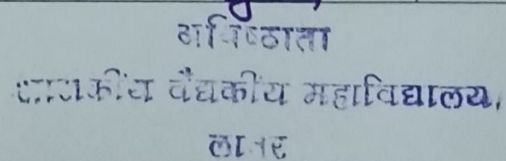 अधिष्ठाता
शासकीय वैद्यकीय महाविद्यालय,
लातूर